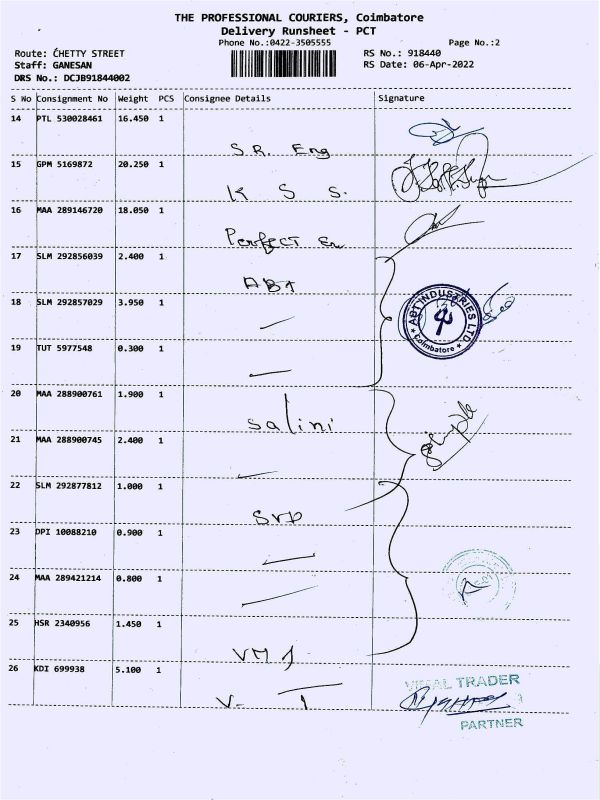 THE PROFESSIONAL COURIERS, Coimbatore
Delivery Runsheet - PCT
Phone No.:0422-3505555 Page No.:2
Route: CHETTY STREET RS No.: 918440
Staff: GANESAN RS Date: 06-Apr-2022
DRS No.: DCJB91844002
S No Consignment No Weight PCS Consignee Details Signature
14 PTL 530028461 16.450 1
S.R. Eng
15 GPM 5169872 20.250 1
K S S.
16 MAA 289146720 18.050 1
Perfect En
17 SLM 292856039 2.400 1
ABT
18 SLM 292857029 3.950 1
ABT INDUSTRIES LTD
* Coimbatore *
19 TUT 5977548 0.300 1
20 MAA 288900761 1.900 1
Salini
21 MAA 288900745 2.400 1
22 SLM 292877812 1.000 1
SVP
23 DPI 10088210 0.900 1
24 MAA 289421214 0.800 1
25 HSR 2340956 1.450 1
26 KDI 699938 5.100 1
TRADER
PARTNER